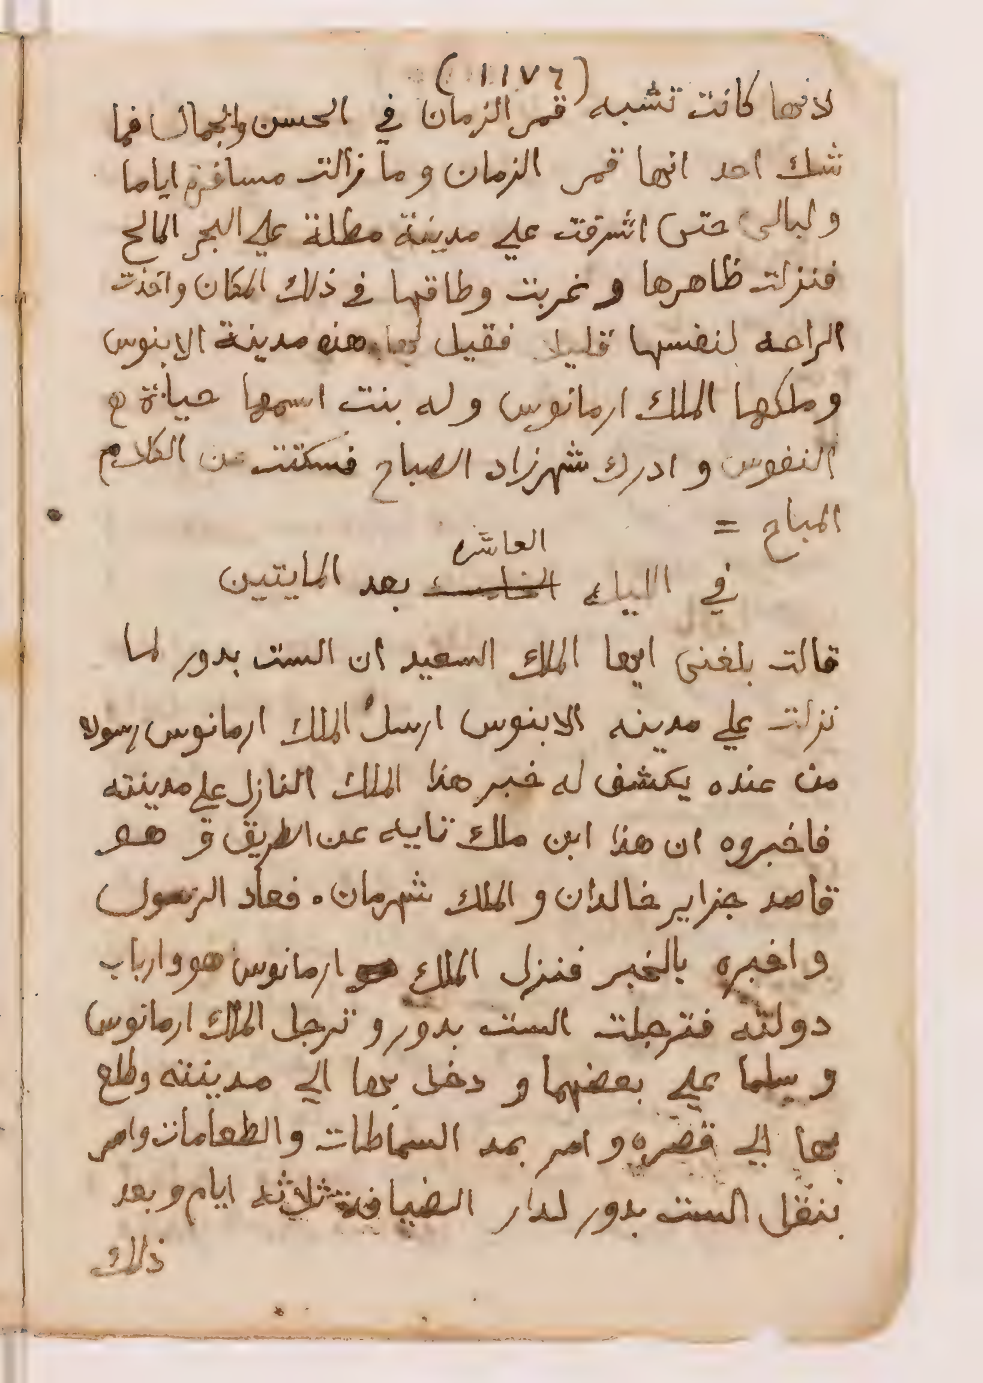 (١١٧٦)
لانها كانت تشبه قمر الزمان في الحسن والجمال فما
شك احد انها قمر الزمان و ما زالت مسافرة اياما
و ليالي حتى اشرفت علي مدينة مطلة علي البحر المالح
فنزلت ظاهرها و ضربت وطاقها في ذلك المكان واخذت
الراحه لنفسها قليلا فقيل لها هذه مدينة الابنوس
و ملكها الملك ارمانوس و له بنت اسمها حياة
النفوس و ادرك شهرزاد الصباح فسكتت عن الكلام
المباح =
العاشره
في الليله بعد المايتين
قالت بلغني ايها الملك السعيد ان الست بدور لما
نزلت علي مدينه الابنوس ارسل الملك ارمانوس رسولا
من عنده يكشف له خبر هذا الملك النازل علي مدينته
فاخبروه ان هذا ابن ملك تايه عن الطريق و هو
قاصد جزاير خالدان و الملك شهرمان . فعاد الرسول
و اخبره بالخبر فنزل الملك ارمانوس هو وارباب
دولته فترجلت الست بدور و ترجل الملك ارمانوس
و سلما علي بعضهما و دخل بها الي مدينته وطلع
بها الي قصره و امر بمد السماطات والطعامات وامر
بنقل الست بدور لدار الضيافة ثلاثه ايام و بعد
ذلك